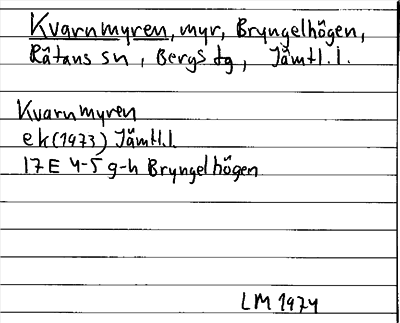 Kvarnmyren, myr, Bryngelhögen,
Rätans sn, Bergs tg, Jämtl.l.
Kvarnmyren
ek (1973) Jämtl.l.
17 E 4-5 g-h Bryngelhögen
LM 1974